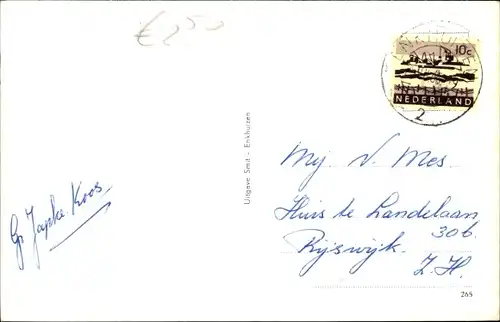 € 2 50
10c
NEDERLAND
2
Uitgave Smit - Enkhuizen
Mij. V. Mes.
Huis te Landelaan
306.
Rijswijk.
Z.H.
Gr. Japke. Koos.
265